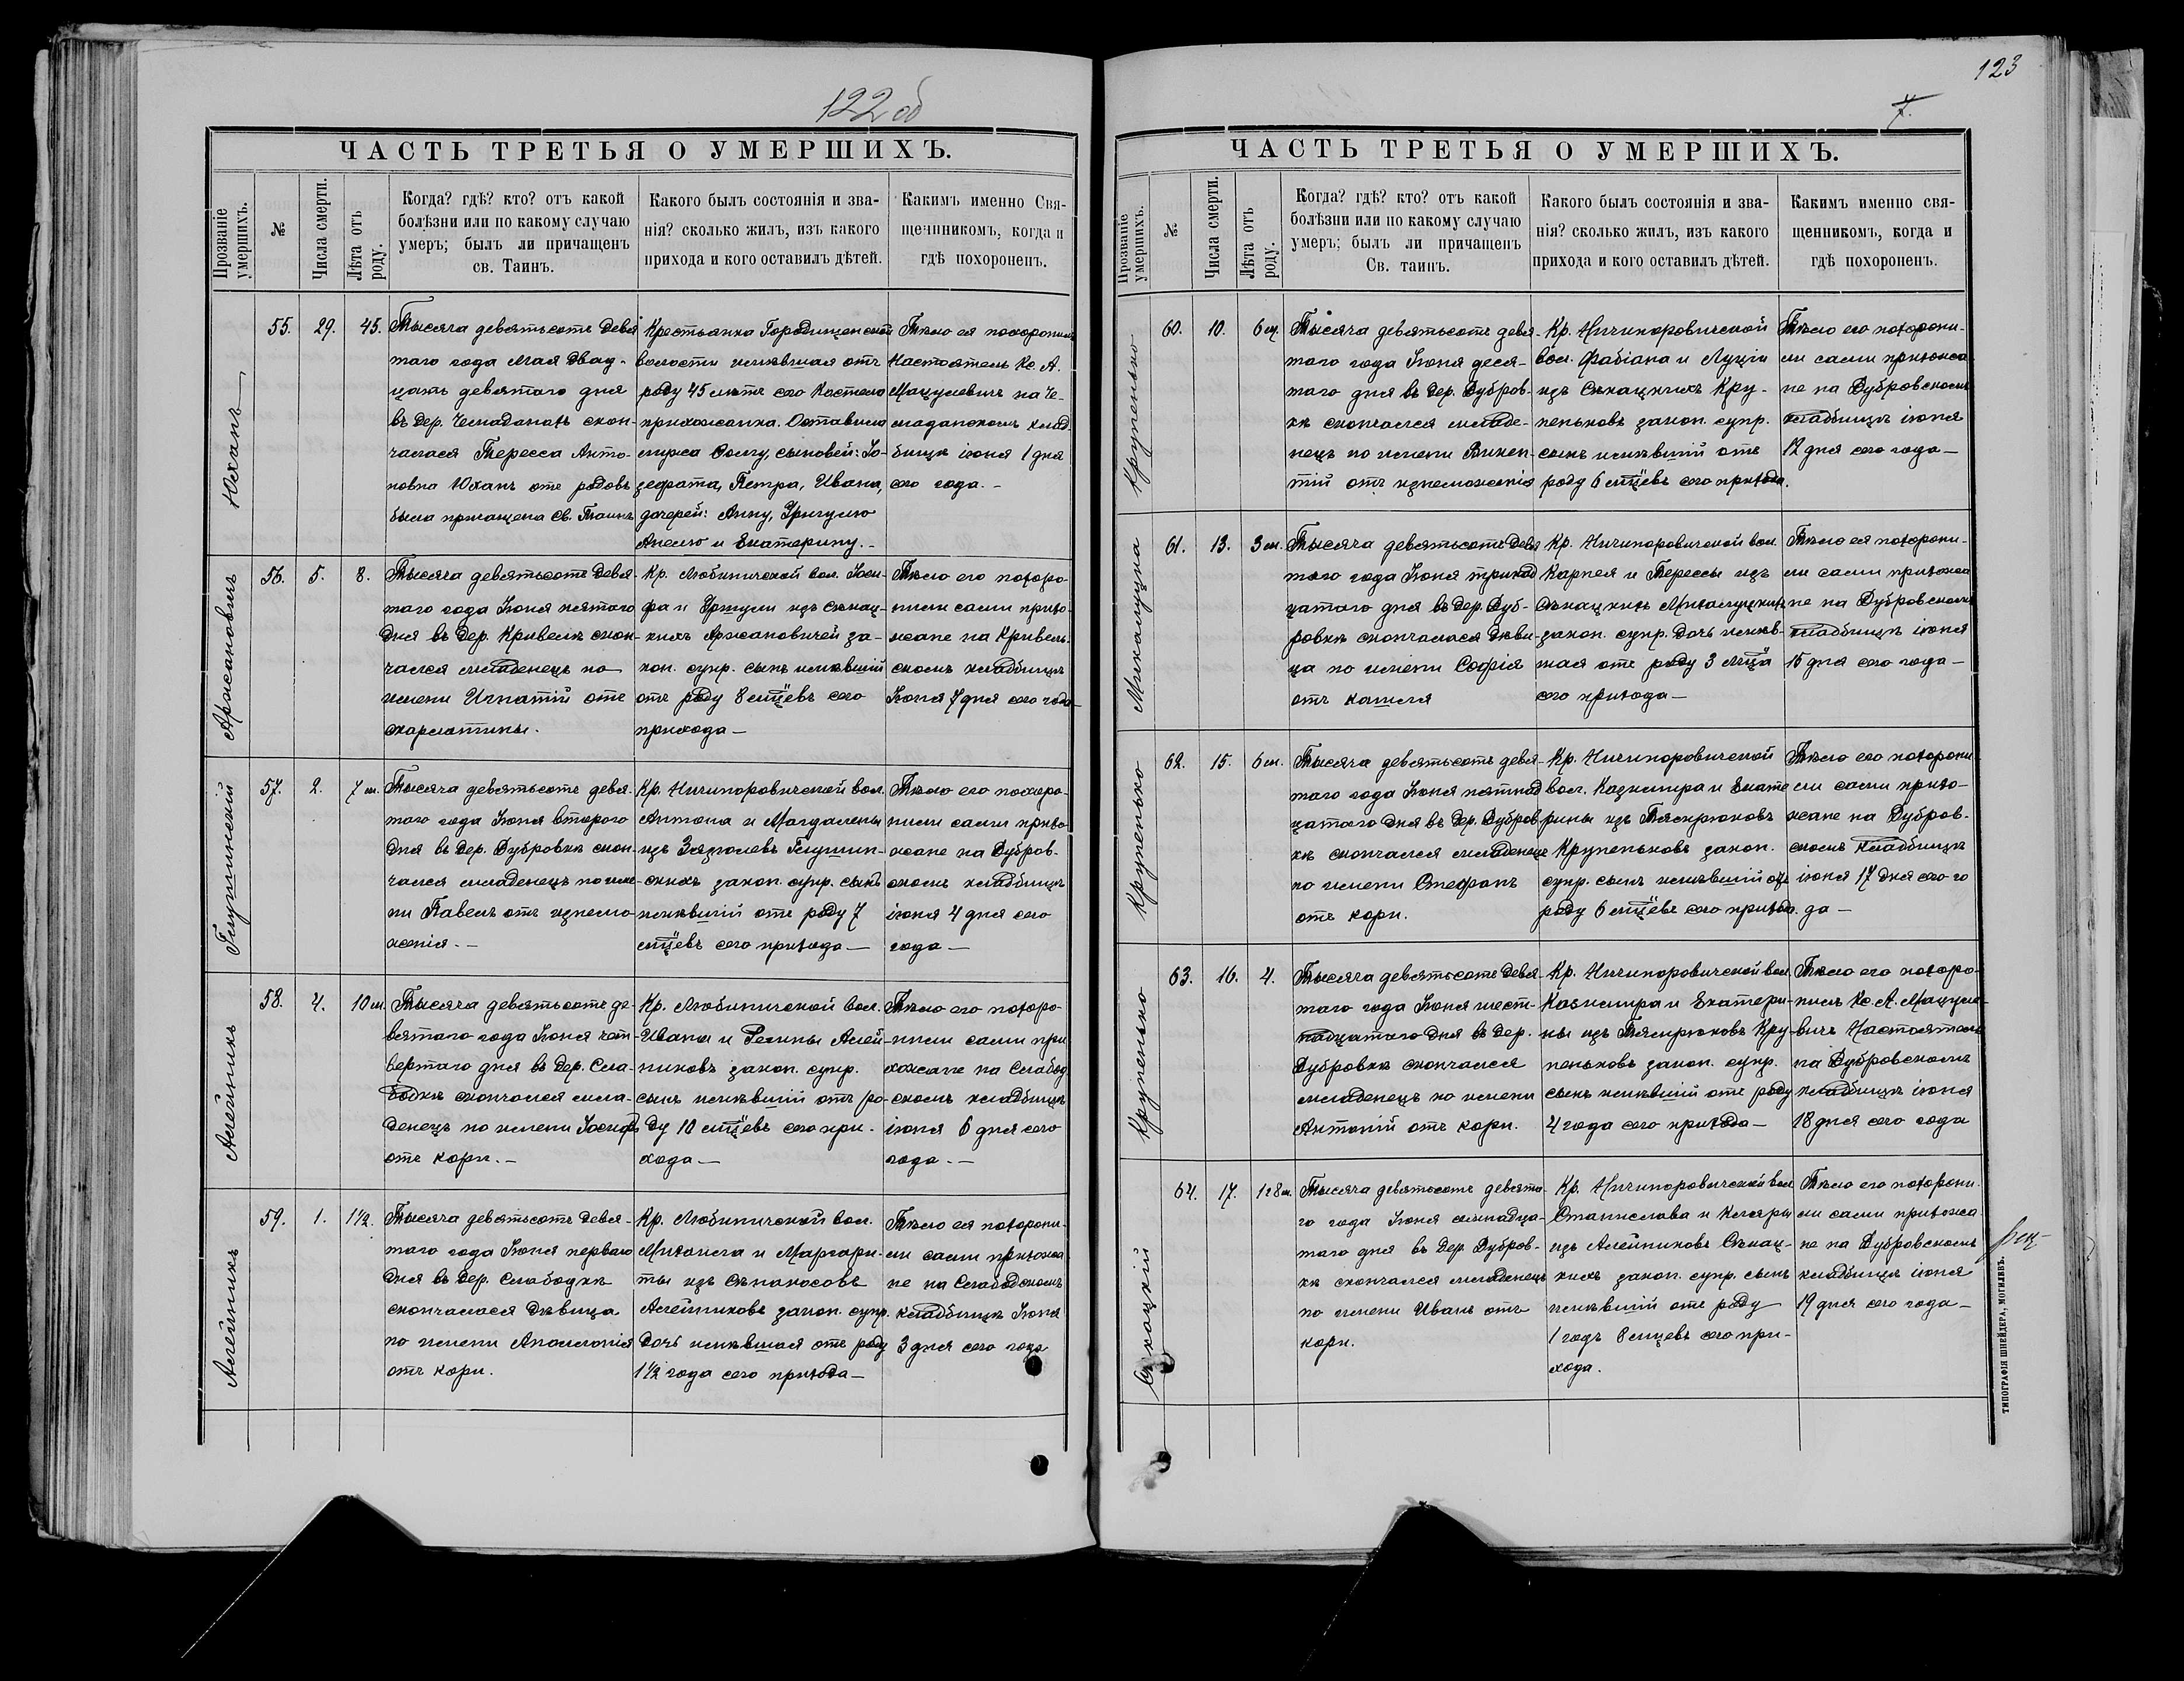 122 об
ЧАСТЬ ТРЕТЬЯ О УМЕРШИХЪ.
Прозваніе умершихъ.
№
Числа смерти.
Лѣта отъ роду.
Когда? гдѣ? кто? отъ какой
болѣзни или по какому случаю
умеръ; былъ ли причащенъ
св. Таинъ.
Какого былъ состоянія и зва-
нія? сколько жилъ, изъ какого
прихода и кого оставилъ дѣтей.
Каким именно Свя-
щенникомъ, когда и
гдѣ похороненъ.
Юханъ
55. 29. 45.
Тысяча девятьсотъ девя
таго года Мая двад-
цать девятаго дня
въ дер. Чемаданахъ скон-
чалася Тересса Анто-
новна Юханъ отъ родовъ
была причащена Св. Таинъ
Крестьянка Городищенской
волости имѣвшая отъ
роду 45 лѣтъ сего Костела
прихожанка. Оставила
мужа Фому, сыновей: Іо-
зефата, Петра, Ивана,
дочерей: Анну, Уршулю
Анелю и Екатерину.-
Тѣло ея похоронилъ
Настоятель Кс. А.
Мацулевичъ на Че-
маданскомъ клад
бищѣ іюня 1 дня
сего года.-
Аржановичъ
56. 5. 8.
Тысяча девятьсотъ девя-
таго года Іюня пятаго
дня въ дер. Кривелѣ скон-
чался младенецъ по
имени Игнатій отъ
скарлатины.
Кр. Любиничской вол. Іоси-
фа и Уршули изъ Сѣнац-
кихъ Аржановичей за-
кон. супр. сынъ имѣвшій
отъ роду 8 мцевъ сего
прихода —
Тѣло его похоро-
нили сами прихо-
жане на Кривель-
скомъ кладбищѣ
Іюня 7 дня сего года —
Глушинскій
57. 2. 7 м.
Тысяча девятьсотъ девя-
таго года Іюня второго
дня въ дер. Дубровкѣ скон-
чался младенецъ по име-
ни Павелъ отъ изнемо-
женія.—
Кр. Ничипоровичской вол.
Антона и Магдалены
изъ Зязюлевъ Глушин-
скихъ закон. супр. сынъ
имѣвшій отъ роду 7
мцевъ сего прихода —
Тѣло его похоро-
нили сами прихо-
жане на Дубров-
скомъ кладбищѣ
іюня 4 дня сего
года —
Алейникъ
58. 4. 10 м.
Тысяча девятьсотъ де-
вятаго года Іюня чет-
вертаго дня въ дер. Сла-
бодкѣ скончался мла-
денецъ по имени Іосифъ
отъ кори.—
Кр. Любиничской вол.
Ивана и Регины Алей-
никовъ закон. супр.
сынъ имѣвшій отъ ро-
ду 10 мцевъ сего при-
хода —
Тѣло его похоро-
нили сами при
хожане на Слабод
скомъ кладбищѣ
іюня 6 дня сего
года.—
Алейникъ
59. 1. 1½.
Тысяча девятьсотъ девя-
таго года Іюня перваго
дня въ дер. Слабодкѣ
скончалася дѣвица
по имени Аполлонія
отъ кори.
Кр. Любиничской вол.
Михаила и Маргари-
ты изъ Сѣнакосовъ
Алейниковъ закон. супр.
дочь имѣвшая отъ роду
1½ года сего прихода —
Тѣло ея похорони-
ли сами прихожа
не на Слабодскомъ
кладбищѣ Іюня
3 дня сего года
123
7.
ЧАСТЬ ТРЕТЬЯ О УМЕРШИХЪ.
Прозваніе умершихъ.
№
Числа смерти.
Лѣта отъ роду.
Когда? гдѣ? кто? отъ какой
болѣзни или по какому случаю
умеръ; былъ ли причащенъ
Св. таинъ.
Какого былъ состоянія и зва-
нія? сколько жилъ, изъ какого
прихода и кого оставилъ дѣтей.
Каким именно свя-
щенникомъ, когда и
гдѣ похороненъ.
Крупенько
60. 10. 6 м.
Тысяча девятьсотъ девя-
таго года Іюня деся-
таго дня въ дер. Дубров-
кѣ скончался младе-
нецъ по имени Викен-
тій отъ изнеможенія
Кр. Ничипоровичской
вол. Фабіана и Луціи
изъ Сѣнацкихъ Кру-
пеньковъ закон. супр.
сынъ имѣвшій отъ
роду 6 мцевъ сего прихода.
Тѣло его похорони-
ли сами прихожа
не на Дубровскомъ
кладбищѣ іюня
12 дня сего года —
Михалуцка
61. 13. 3 м.
Тысяча девятьсотъ девя
таго года Іюня тринад
цатаго дня въ дер. Дуб-
ровкѣ скончалася дѣви-
ца по имени Софія
отъ кашля
Кр. Ничипоровичской вол.
Карнея и Терессы изъ
Сѣнацкихъ Михалуцкихъ
закон. супр. дочь имѣв-
шая отъ роду 3 мца
сего прихода —
Тѣло ея похорони-
ли сами прихожа
не на Дубровскомъ
кладбищѣ іюня
15 дня сего года —
Крупенько
62. 15. 6 м.
Тысяча девятьсотъ девя-
таго года Іюня пятнад
цатаго дня въ дер. Дубров
кѣ скончался младенецъ
по имени Стефанъ
отъ кори.
Кр. Ничипоровичской
вол. Казимира и Екате
рины изъ Тямрюковъ
Крупеньковъ закон.
супр. сынъ имѣвшій отъ
роду 6 мцевъ сего прихода.
Тѣло его похорони
ли сами прихо-
жане на Дубров-
скомъ кладбищѣ
іюня 17 дня сего го
да —
Крупенько
63. 16. 4.
Тысяча девятьсотъ девя
таго года Іюня шест-
надцатаго дня въ дер.
Дубровкѣ скончался
младенецъ по имени
Антоній отъ кори.
Кр. Ничипоровичской вол.
Казимира и Екатери-
ны изъ Тямрюковъ Кру-
пеньковъ закон. супр.
сынъ имѣвшій отъ роду
4 года сего прихода —
Тѣло его похоро-
нилъ Кс. А. Мацуле-
вичъ Настоятель
на Дубровскомъ
кладбищѣ іюня
18 дня сего года
Сѣнацкій
64. 17. 1 г 8 м.
Тысяча девятьсотъ девята-
го года Іюня семнадца-
таго дня въ дер. Дубров-
кѣ скончался младенецъ
по имени Иванъ отъ
кори.
Кр. Ничипоровичской вол
Станислава и Кляры
изъ Алейниковъ Сѣнац-
кихъ закон. супр. сынъ
имѣвшій отъ роду
1 годъ 8 мцевъ сего при-
хода.
Тѣло его похорони-
ли сами прихожа-
не на Дубровскомъ
кладбищѣ іюня
19 дня сего года —
ТИПОГРАФІЯ ШНЕЙДЕРА, МОГИЛЕВЪ.